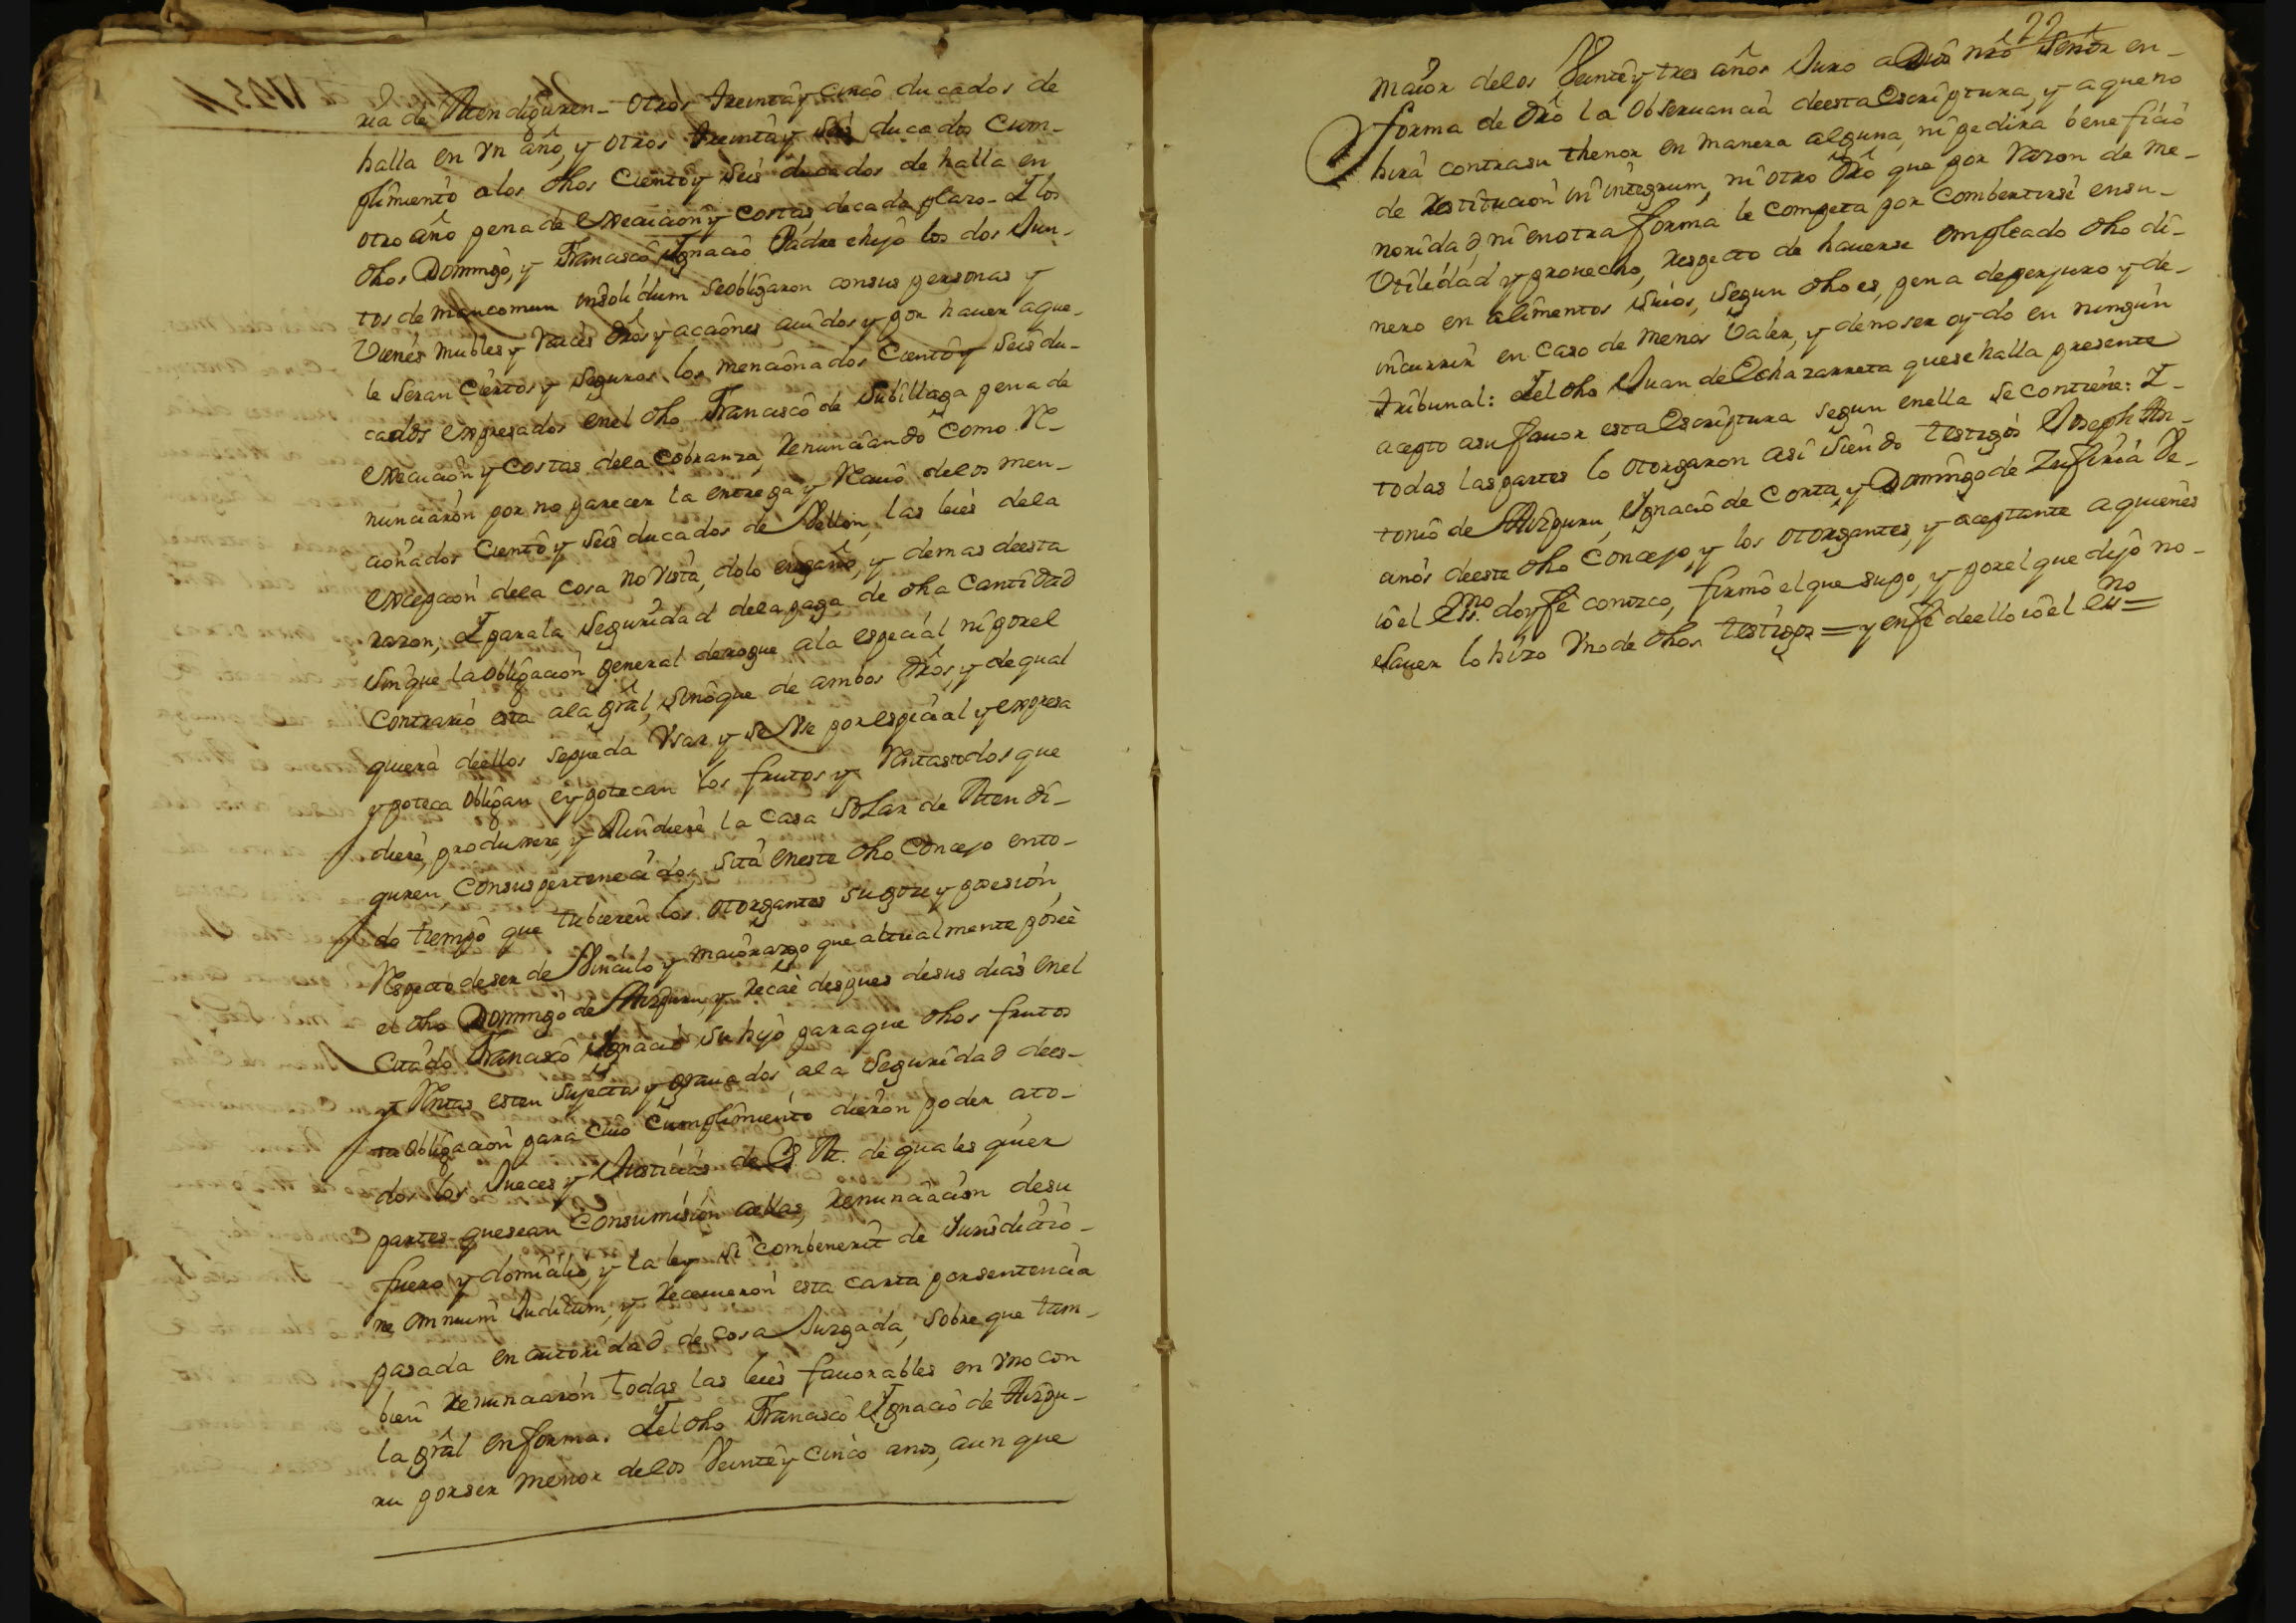 ria de Atendiguren - otros treinta y cinco ducados de
halla en vn año, y otros treinta y seis ducados cum-
plimiento alos dhos ciento y seis ducados de halla en
otro año pena de execucion y costas de cada plazo - I los
dhos Domingo, y Francisco Ignacio Padre e hijo los dos Jun-
tos de mancomun insolidum se obligaron con sus personas y
vienes mubles y raices dros y acciones auidos y por hauer aque
le seran ciertos y seguros los mencionados ciento y seis du-
cados expresados en el dho Francisco de Subillaga pena de
execucion y costas dela cobranza, renunciando como re-
nunciaron por no parecer la entrega y reciuo delos men-
cionados ciento y seis ducados de Vellon, las leies dela
excepcion dela cosa no vista, dolo engaño, y demas deesta
razon; I para la seguridad dela paga de dha cantidad
sin que la obligacion general derogue ala especial ni por el
contrario esta ala gral, sino que de ambos dros, y de qual
quiera dellos se pueda vsar y se vse por especial y expresa
ypoteca obligan e ypotecan los frutos y rentas todos que
diere, produxere, y rindiere la casa solar de Atendi-
guren, con sus pertenecidos, sita en este dho concejo en to-
do tiempo que tubieren los otorgantes su goze y posesion,
respecto de ser de Vinculo y maiorazgo que actualmente posee
el dho Domingo de Aizpuru, y recae despues de sus dias en el
citado Francisco Ignacio su hijo para que dhos frutos
y rentas esten sujectos y grauados ala seguridad dees-
ta obligacion para cuio cumplimiento dieron poder a to-
dos los Jueces y Justicias de S. M. de quales quier
partes que sean con sumision aellas, renunciacion de su
fuero y domicilio, y la ley si combenerit de Jurisdictio-
ne omnium Judicum, y receuieron esta carta por sentencia
pasada en autoridad de cosa Juzgada, sobre que tam-
bien renunciaron todas las leies fauorables en vno con
la gral en forma. I el dho Francisco Ignacio de Aizpu-
ru por ser menor delos Veinte y cinco anos, aun que
22
maior delos Veinte y tres años Juro a Dios nro Señor en
forma de dro la obseruancia deesta Escriptura, y aque no
hira contra su thenor en manera alguna, ni pedira beneficio
de restitucion in integrum, ni otro dro que por razon de me-
noridad, ni en otra forma le competa por combertirse en su
Vtilidad y prouecho, respecto de hauerse empleado dho di-
nero en alimentos suios, segun dho es, pena de perjuro y de
incurrir en caso de menos valer, y de no ser oydo en ningun
tribunal: I el dho Juan de Echazarreta que se halla presente
acepto a su fauor esta Escriptura segun enella se contiene: I
todas las partes lo otorgaron asi siendo testigos Joseph An-
tonio de Aizpuru, Ignacio de Corta, y Domingo de Zufiria Ve-
cinos deeste dho concejo, y los otorgantes, y aceptante a quienes
io el Essno. doy fe conozco, firmo el que supo, y por el que dijo no
sauer lo hizo vno de dhos testigos = y en fe de ello io el essno =